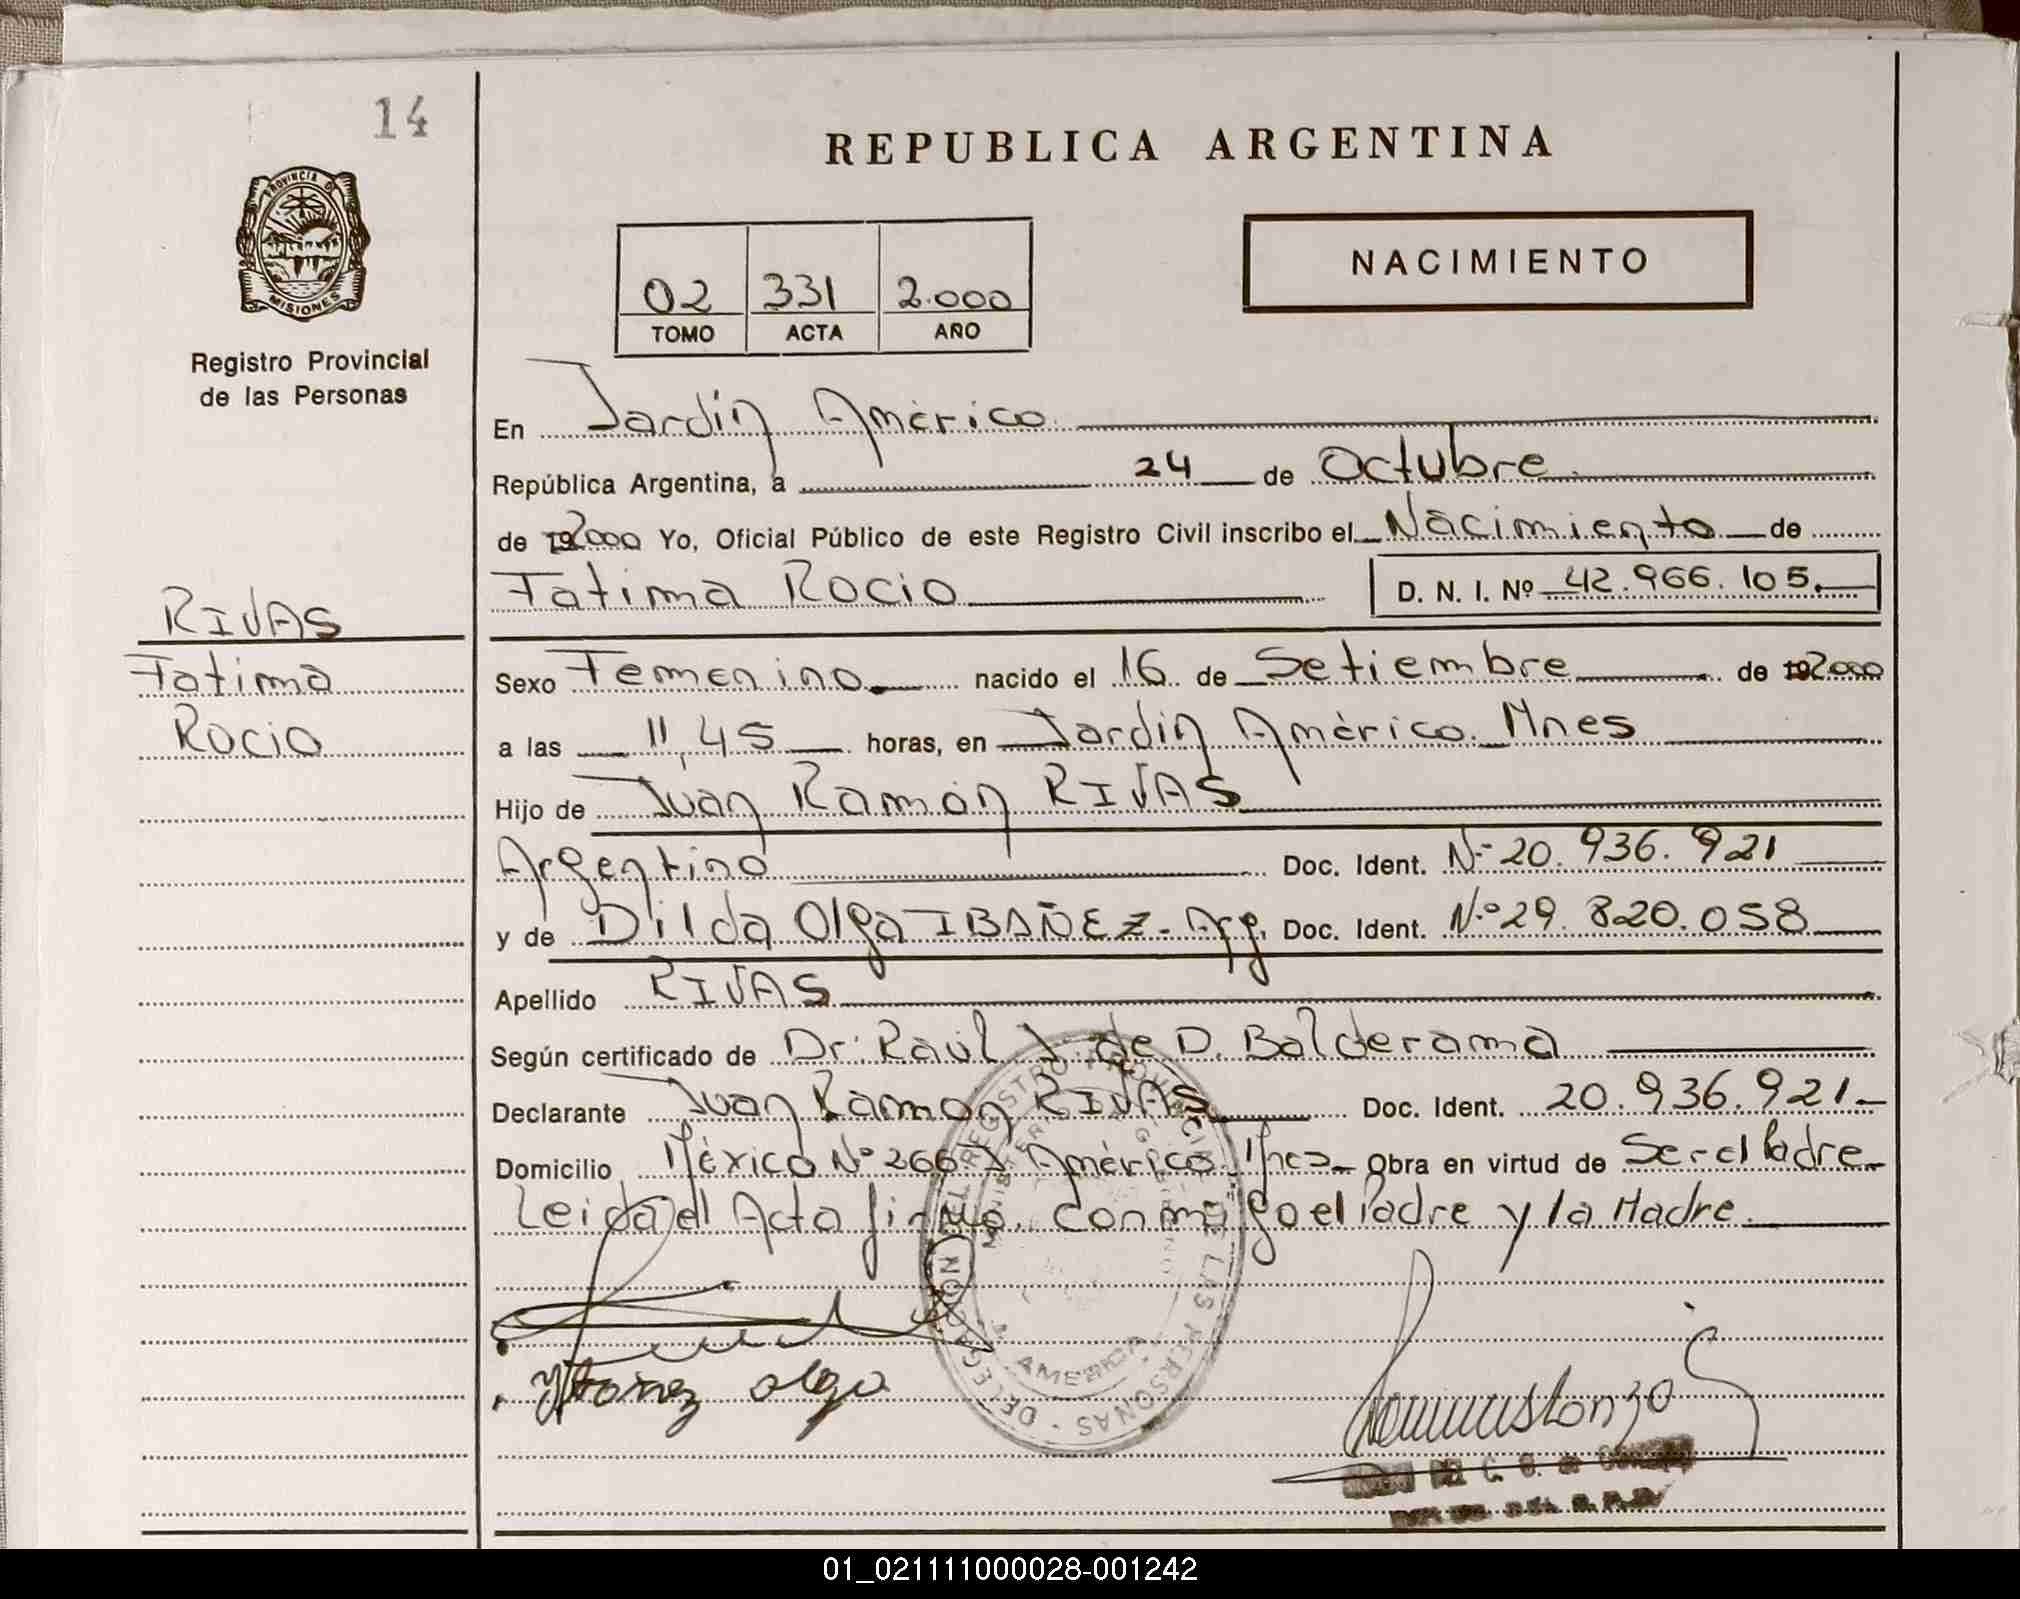 14
REPUBLICA ARGENTINA
PROVINCIA DE
MISIONES
Registro Provincial
de las Personas
02 331 2.000
TOMO ACTA AÑO
NACIMIENTO
En Jardín América
República Argentina, a 24 de Octubre
de 2000 Yo, Oficial Público de este Registro Civil inscribo el Nacimiento de
Fatima Rocio D. N. I. Nº 42.966.105.
RIVAS
Fatima
Rocio
Sexo Femenino nacido el 16 de Setiembre de 2.000
a las 11,45 horas, en Jardín América. Mnes
Hijo de Juan Ramón RIVAS
Argentino Doc. Ident. Nº 20.936.921
y de Dilda Olga IBAÑEZ - Arg. Doc. Ident. Nº 29.820.058
Apellido RIVAS
Según certificado de Dr. Raúl J. de D. Balderama
Declarante Juan Ramon RIVAS Doc. Ident. 20.936.921
Domicilio México Nº 266 J. América Mnes Obra en virtud de Ser el Padre
Leida el Acta firma conmigo el Padre y la Madre.
REGISTRO PROVINCIAL DE LAS PERSONAS - DELEGACION
AMERICA
olga
01_021111000028-001242